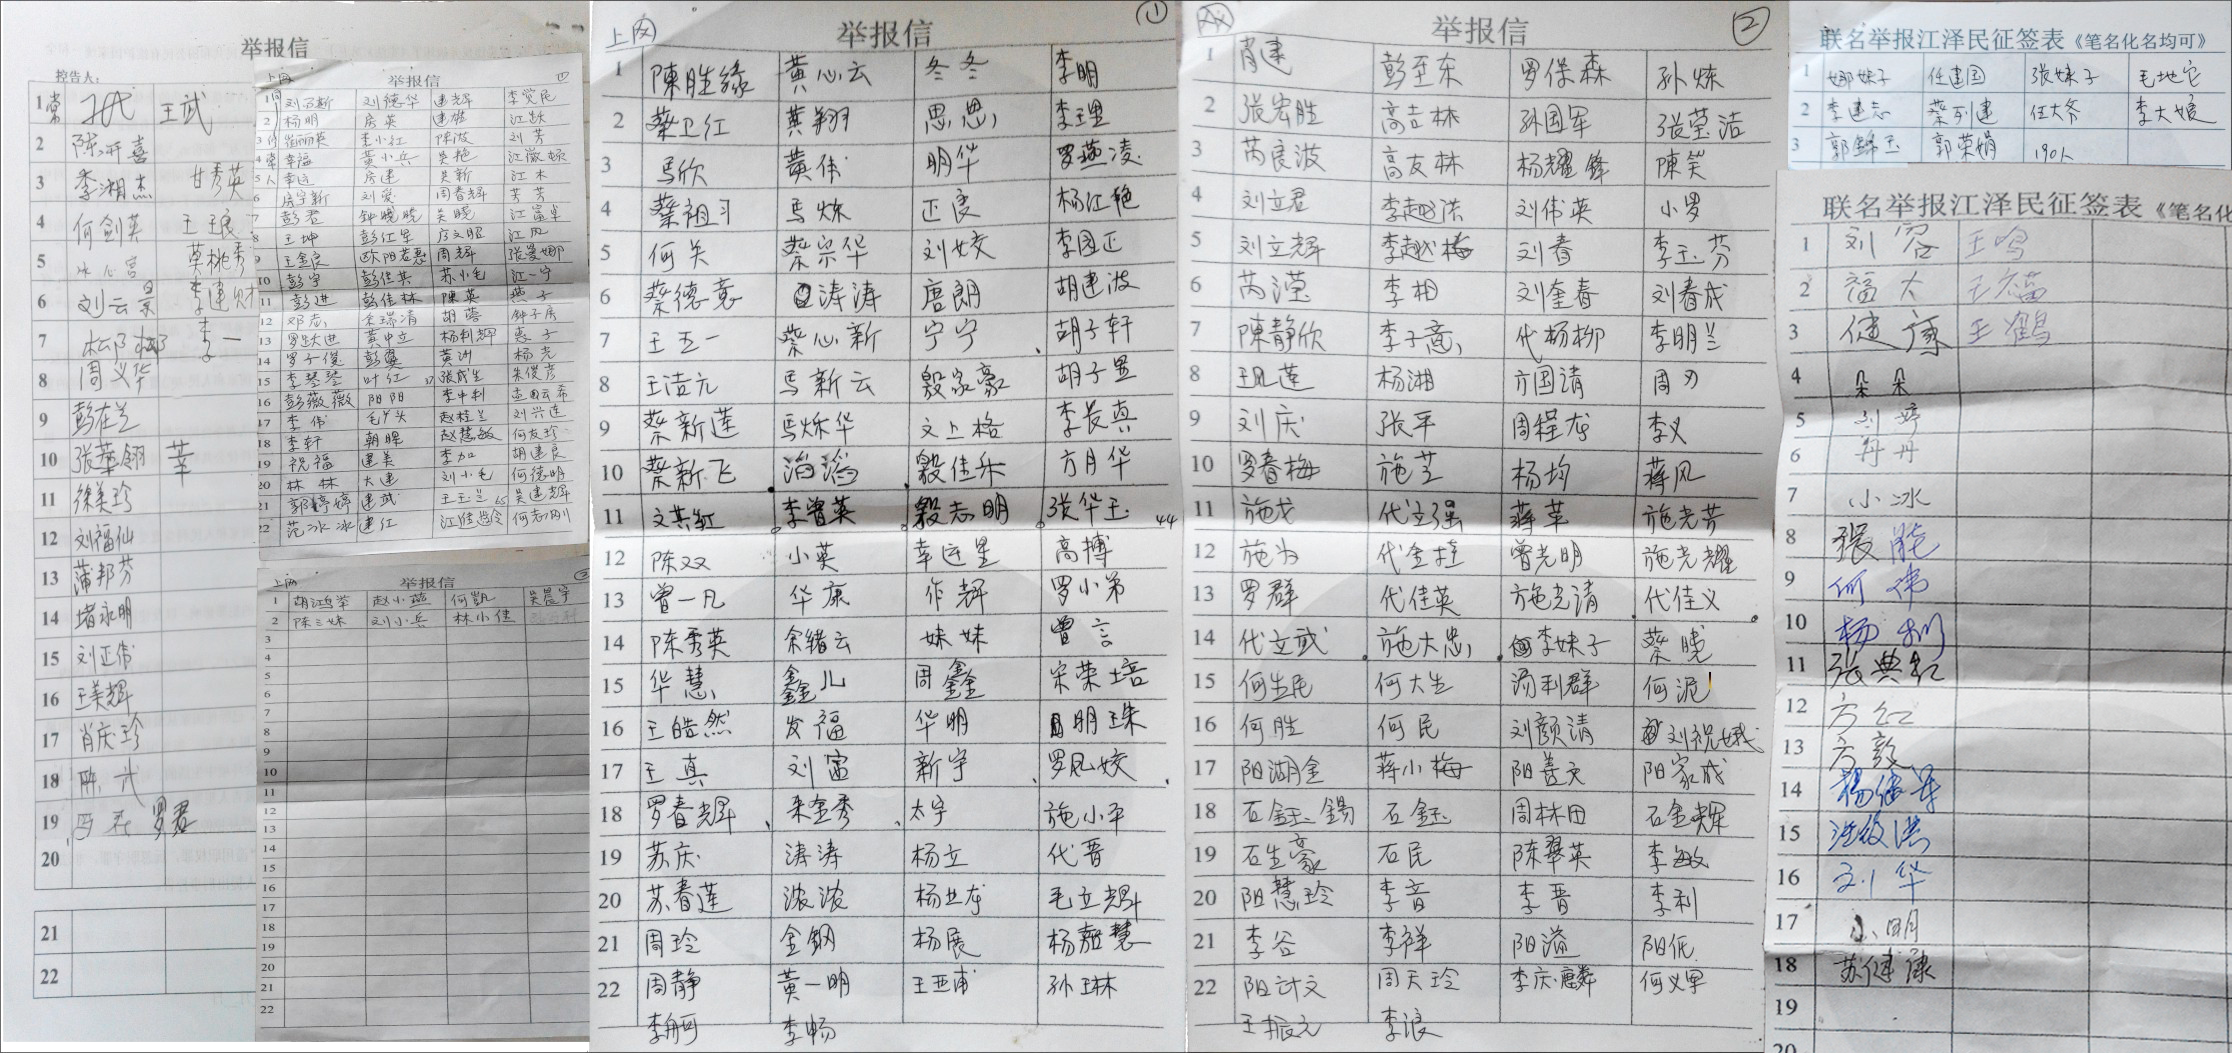 举报信
控告人:
1 王武
2 陈开喜
3 李湘杰 甘秀英
4 何剑英
5 莫桃秀
6 刘云景 李建财
7 李一
8 周义华
9 彭在兰
10 张华翎
11 徐美珍
12 刘福仙
13 蒲邦芬
14 堵永明
15 刘正伟
16 王美辉
17 肖庆珍
18 陈武
19 罗君
20
21
22
上网 举报信 四
1 刘德华 建辉 李觉民
2 杨明 房英 建雄 江跃
3 崔丽英 李小红 陈波 刘芳
4 幸福 黄小兵 吴艳
5 幸运 房建 吴新 江木
6 房宇新 刘爱 周春辉 芳芳
7 彭君 钟晓晓 吴晓
8 王坤 彭仁军 房文昭 江凤
9 王金良 周辉 张曼娜
10 彭宇 彭佳其 苏小毛 江一宁
11 彭进 彭佳林 陳英 燕子
12 邓志 胡蓉 钟子房
13 罗跃进 黄中立 杨利辉 惠子
14 罗子俊 彭翼 黄洲 杨光
15 李琴琴 叶红 张成生 朱俊彦
16 彭薇薇 阳阳 李中利
17 李伟 毛丫头 赵桂兰 刘兴莲
18 李轩 朝晖 赵慧敏 何友珍
19 祝福 建美 李加 胡建良
20 林林 大建 刘小毛 何德明
21 郭婷婷 建武 王玉兰 吴建辉
22 范冰冰 建红 何志刚
上网 举报信
1 胡鸿举 赵小燕 何凯 吴晨宇
2 陈三妹 刘小兵 林小佳
3
4
5
6
7
8
9
10
11
12
13
14
15
16
17
18
19
20
21
22
上网 举报信 ①
1 陳胜缘 黄心云 冬冬 李明
2 蔡卫红 黄翔 思思 李理
3 馬欣 黄伟 明华 罗燕凌
4 蔡祖习 馬烁 正良 杨江艳
5 何关 蔡宗华 刘姣 李国正
6 蔡德意 涛涛 唐朗 胡建波
7 王五一 蔡心新 宁宁 胡子轩
8 王洁元 馬新云 殷家豪 胡子墨
9 蔡新莲 馬烁华 文上格 李长真
10 蔡新飞 滔滔 毅佳乐 方月华
11 文其红 李曾英 毅志明 张华玉 44
12 陈双 小英 幸运星 高搏
13 曾一凡 华康 作辉 罗小弟
14 陈秀英 余绪云 妹妹 曾言
15 华慧 鑫儿 周鑫 宋荣培
16 王皓然 发福 华明 明珠
17 王真 刘富 新宇 罗凤姣
18 罗春辉 来金秀 太宇 施小平
19 苏庆 涛涛 杨立 代晋
20 苏春莲 浓浓 杨业龙 毛立辉
21 周玲 金钢 杨展 杨懿慧
22 周静 黄一明 王亚甫 孙琳
李舸 李畅
举报信 ②
1 肖建 彭至东 罗保森 孙炼
2 张宏胜 高吉林 孙国军 张莹洁
3 芮良波 高友林 杨耀锋 陳笑
4 刘立君 李越洪 刘伟英 小罗
5 刘立辉 李越梅 刘春 李玉芬
6 芮滢 李相 刘奎春 刘春成
7 陳静欣 李子意 代杨柳 李明兰
8 王凤莲 杨湘 方国请 周刃
9 刘庆 张平 周程龙 李义
10 罗春梅 施芝 杨均 蒋风
11 施戈 代立强 蒋苹 施光芳
12 施为 代金拉 曾光明 施光耀
13 罗群 代佳英 施光清 代佳义
14 代立武 施大忠 李妹子 蔡晓
15 何生民 何大生 汤利群 何泥
16 何胜 何民 刘颜清 刘祝娥
17 阳湖金 蒋小梅 阳善文 阳家成
18 石钰锡 石钰 周林田 石金辉
19 石生豪 石民 陈翠英 李敏
20 阳慧玲 李音 李晋 李利
21 李谷 李祥 阳溢 阳低
22 阳计文 周天玲 李庆麟 何义军
王振元 李浪
联名举报江泽民征签表《笔名化名均可》
1 娜妹子 任建国 张妹子 毛地它
2 李建志 蔡列建 任大爷 李大娘
3 郭锋玉 郭荣娟 190人
联名举报江泽民征签表《笔名化
1 刘容 王鸣
2 福大 王福
3 健康 王鹤
4 朵朵
5 刘婷
6 丹丹
7 小冰
8 張胜
9 何伟
10 杨州
11 张典红
12 方红
13 方毅
14 杨继军
15
16 刘华
17 小明
18 苏健康
19
20